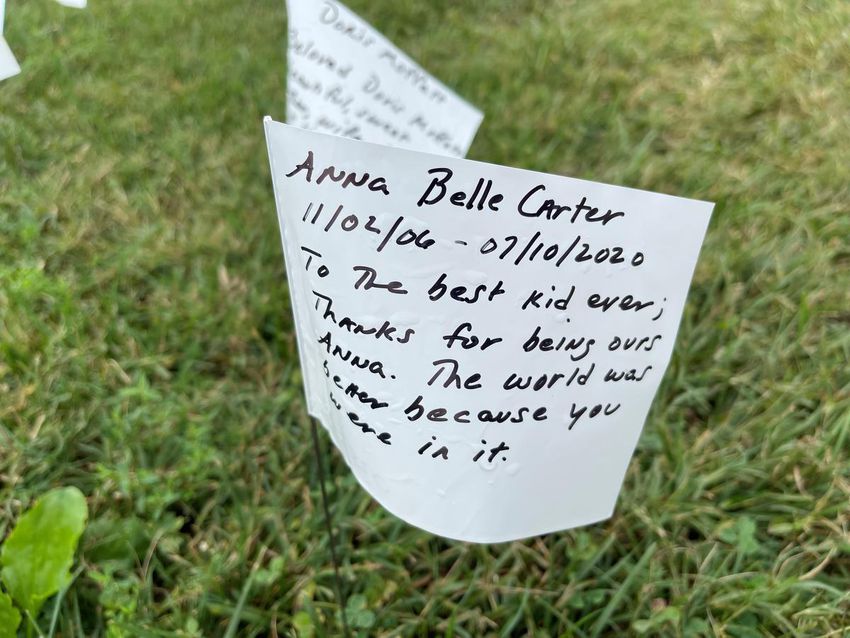 Doris Moffatt
Beloved Doris
sweet
Anna Belle Carter
11/02/06 - 07/10/2020
To The best kid ever;
Thanks for being ours
Anna. The world was
better because you
were in it.